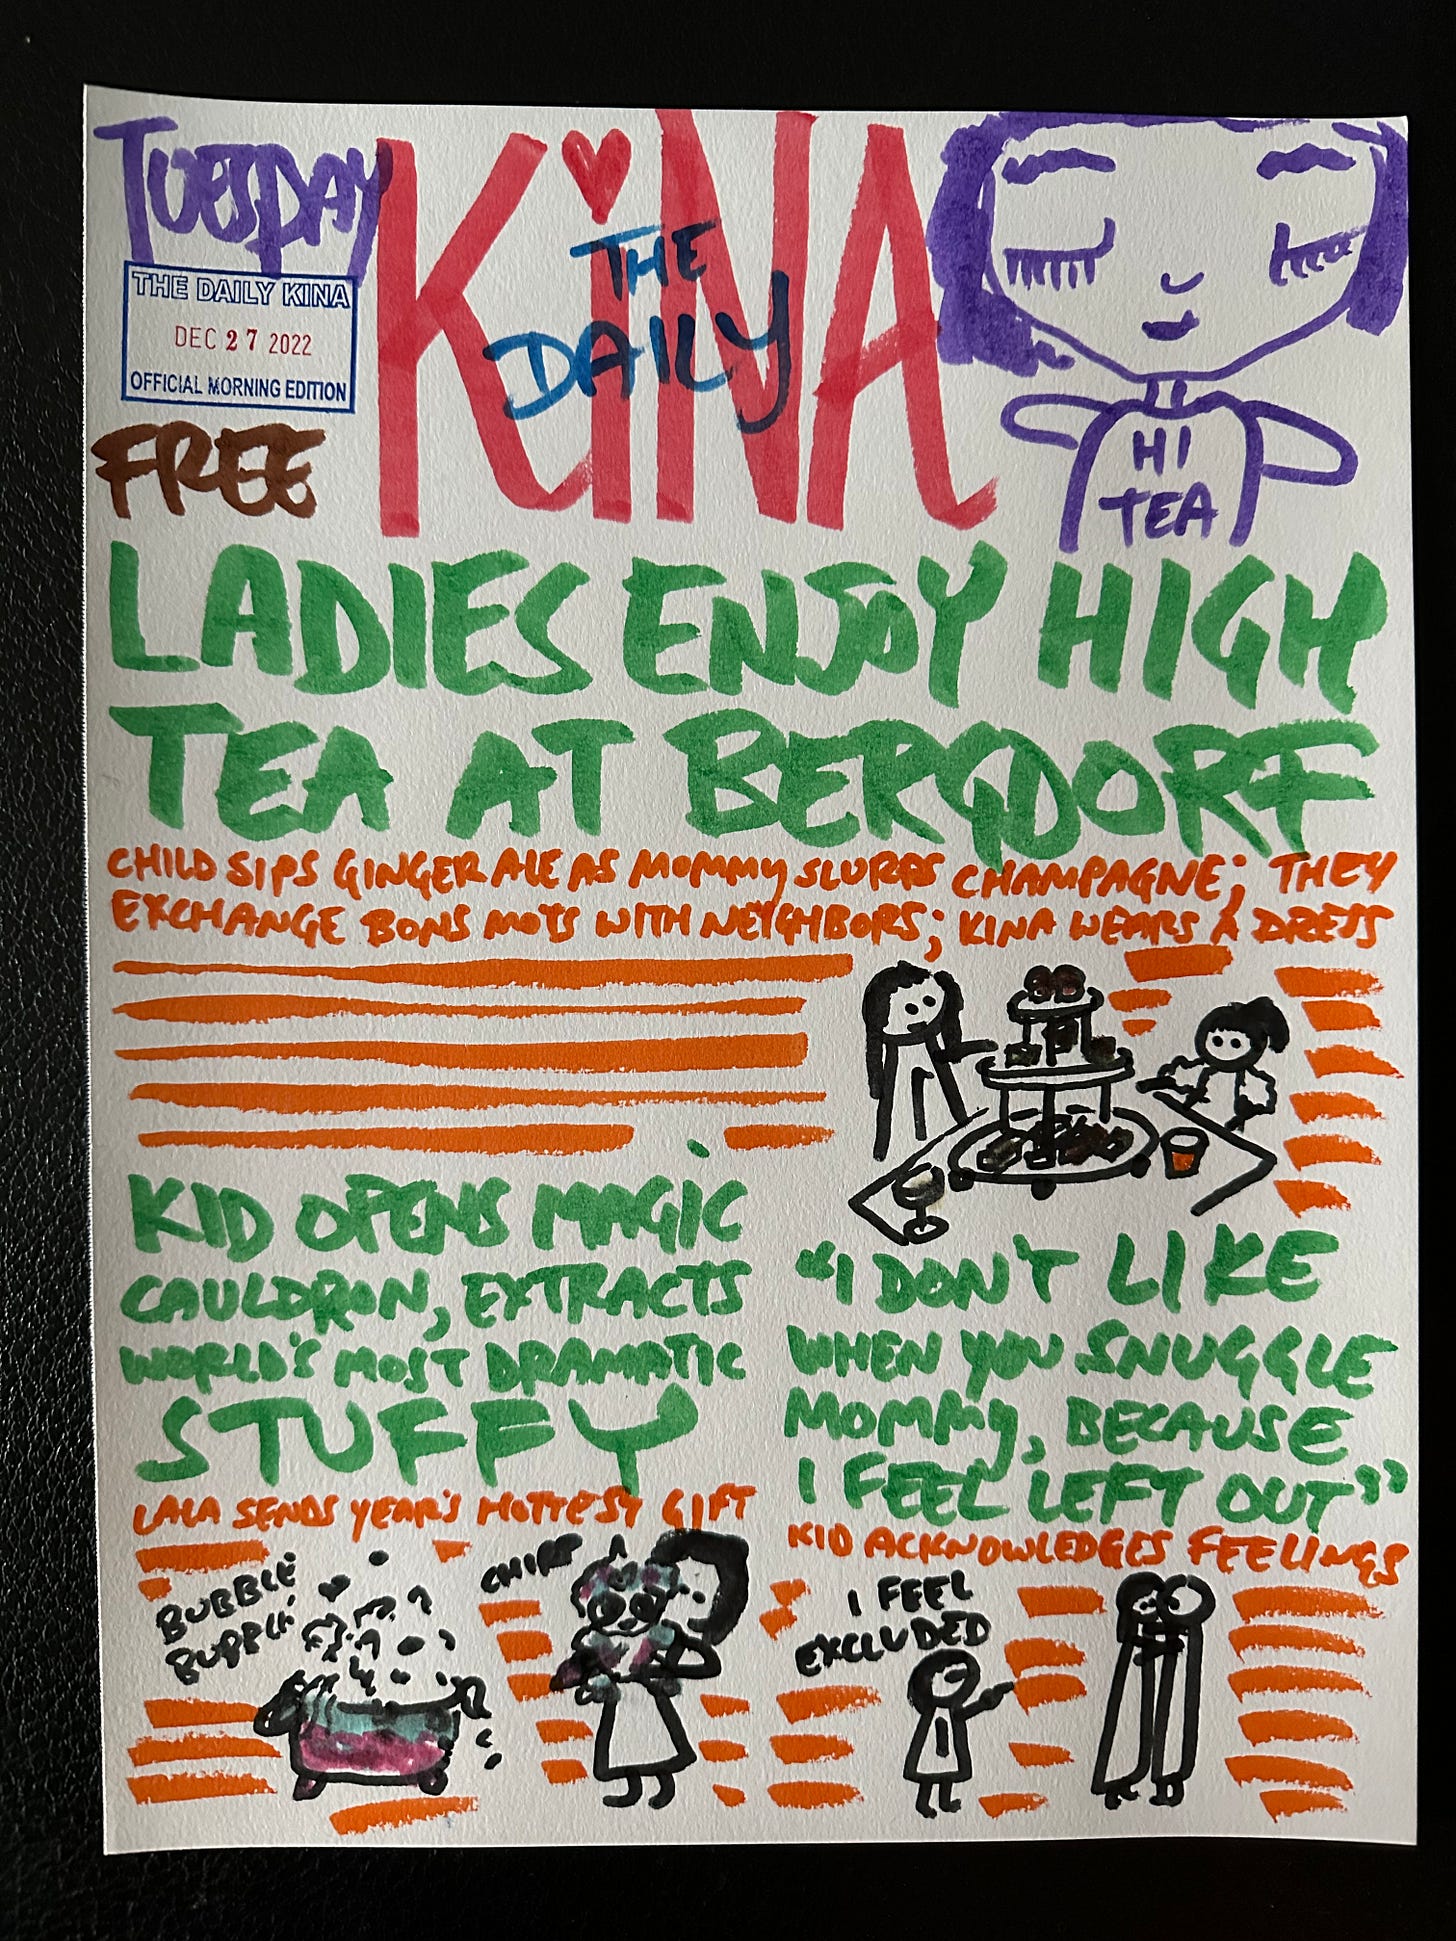 TUESDAY
THE DAILY KINA
DEC 27 2022
OFFICIAL MORNING EDITION
FREE
THE
DAILY
KiNA
HI
TEA
LADIES ENJOY HIGH
TEA AT BERGDORF
CHILD SIPS GINGER ALE AS MOMMY SLURPS CHAMPAGNE; THEY
EXCHANGE BONS MOTS WITH NEIGHBORS; KINA WEARS A DRESS
KID OPENS MAGIC
CAULDRON, EXTRACTS
WORLD'S MOST DRAMATIC
STUFFY
LALA SENDS YEAR'S HOTTEST GIFT
BUBBLE
BUBBLE
CHIRP
"I DON'T LIKE
WHEN YOU SNUGGLE
MOMMY, BECAUSE
I FEEL LEFT OUT"
KID ACKNOWLEDGES FEELINGS
I FEEL
EXCLUDED